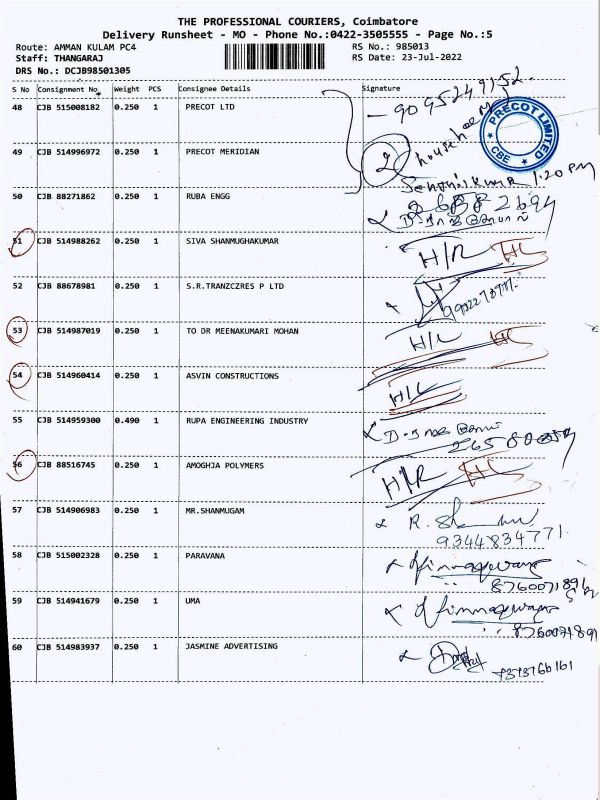 THE PROFESSIONAL COURIERS, Coimbatore
Delivery Runsheet - MO - Phone No.:0422-3505555 - Page No.:5
Route: AMMAN KULAM PC4 RS No.: 985013
Staff: THANGARAJ RS Date: 23-Jul-2022
DRS No.: DCJB98501305
S No Consignment No. Weight PCS Consignee Details Signature
48 CJB 515008182 0.250 1 PRECOT LTD 9095249152
PRECOT LIMITED CBE
49 CJB 514996972 0.250 1 PRECOT MERIDIAN 2
1:20 PM
50 CJB 88271862 0.250 1 RUBA ENGG
51 CJB 514988262 0.250 1 SIVA SHANMUGHAKUMAR H/R
52 CJB 88678981 0.250 1 S.R.TRANZCZRES P LTD
53 CJB 514987019 0.250 1 TO DR MEENAKUMARI MOHAN
54 CJB 514960414 0.250 1 ASVIN CONSTRUCTIONS
55 CJB 514959300 0.490 1 RUPA ENGINEERING INDUSTRY
56 CJB 88516745 0.250 1 AMOGHJA POLYMERS H/R
57 CJB 514906983 0.250 1 MR.SHANMUGAM
9344834771
58 CJB 515002328 0.250 1 PARAVANA
59 CJB 514941679 0.250 1 UMA
60 CJB 514983937 0.250 1 JASMINE ADVERTISING